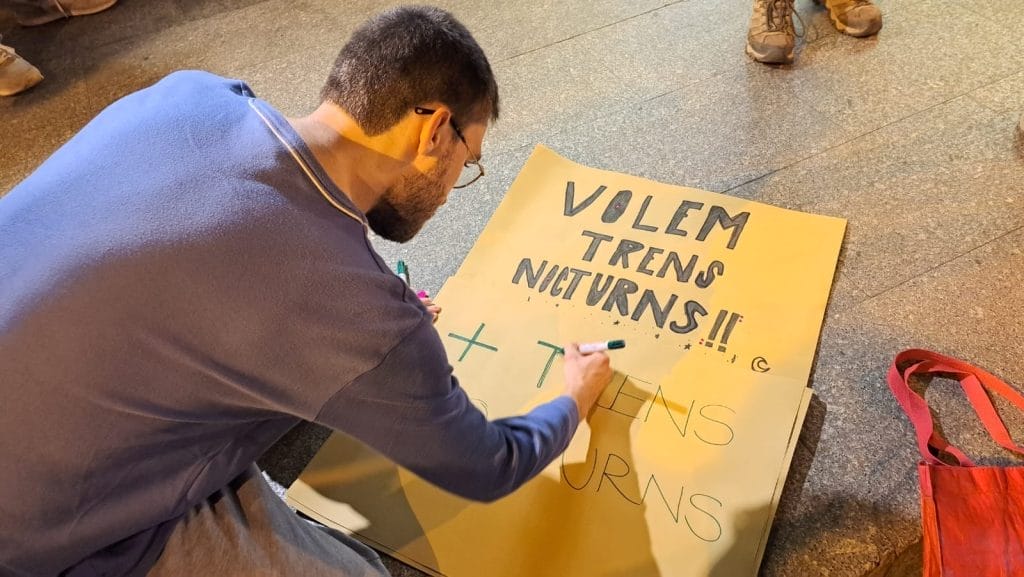 VOLEM
TRENS
NICTURNS!!
©
+ TRENS
URNS